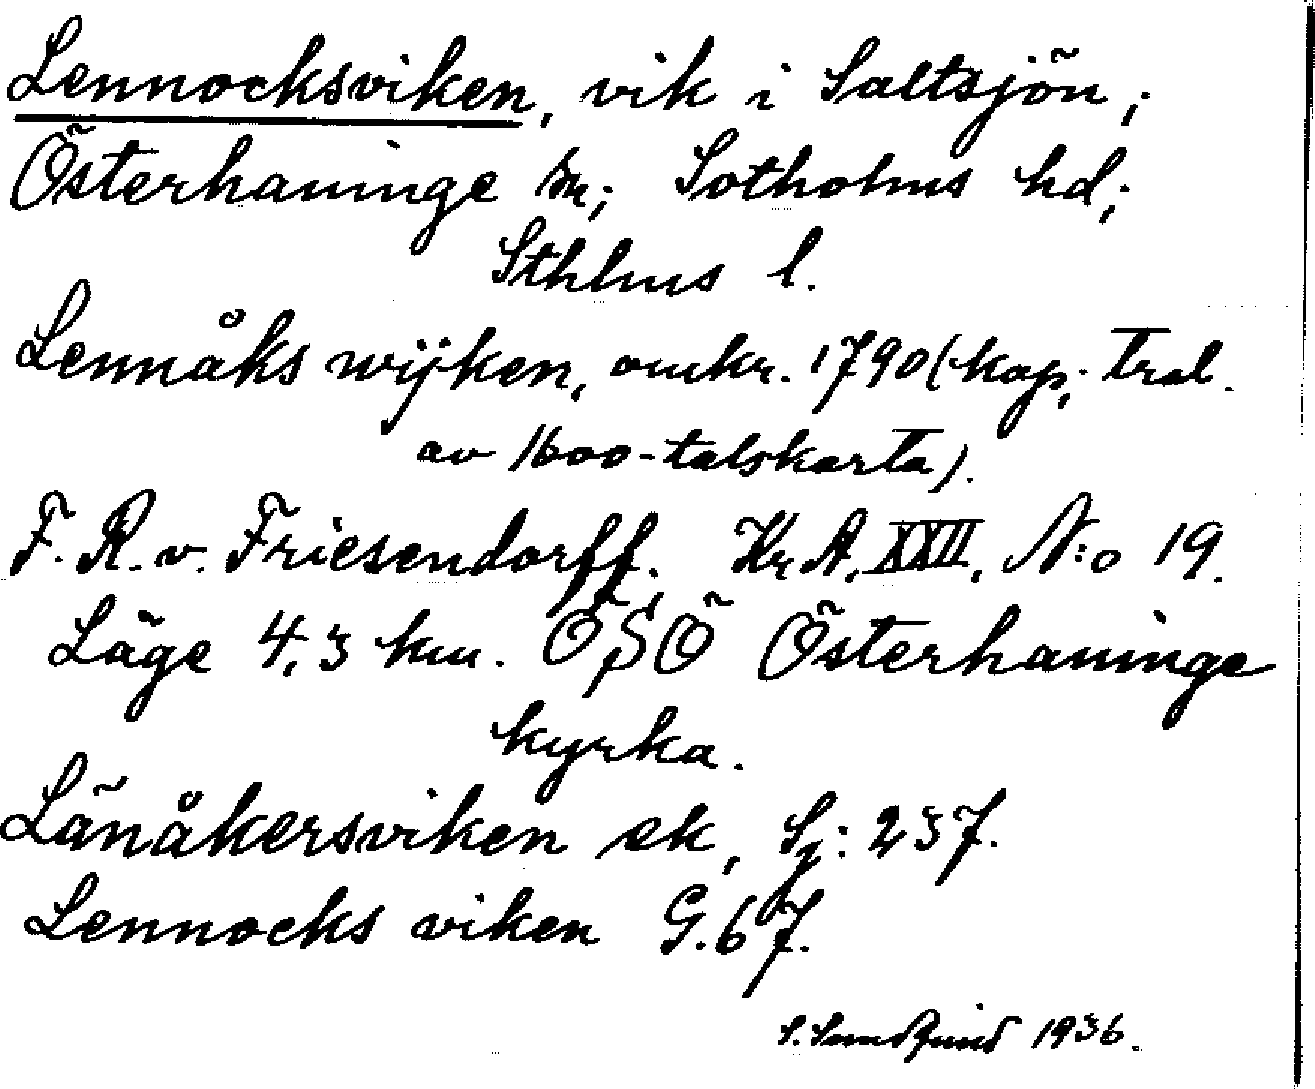 Lennocksviken, vik i Saltsjön;
Österhaninge sn; Sotholms hd;
Sthlms l.
Lennåks wijken, omkr. 1790 (kop. Tral.
av 1600-talskarta).
F. R. v. Friesendorff. Kr. A. XXII. N:o 19.
Läge 4,3 km. ÖSÖ Österhaninge
kyrka.
Länåkersviken ek, Sj: 237.
Lennocks viken G. 67.
1936.